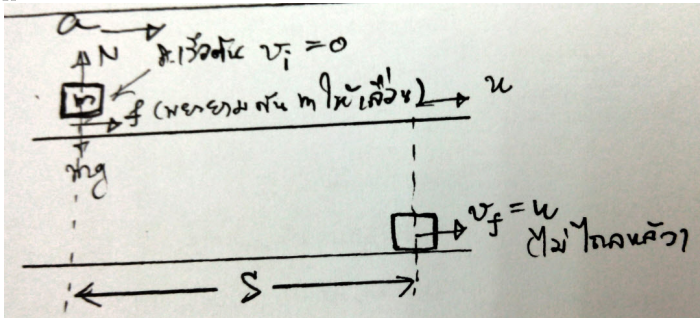 a
N
จ.เริ่มต้น v_i = 0
m
f (พยายามดัน m ให้เลื่อน)
u
mg
v_f = u
(ไม่ไถลแล้ว)
S